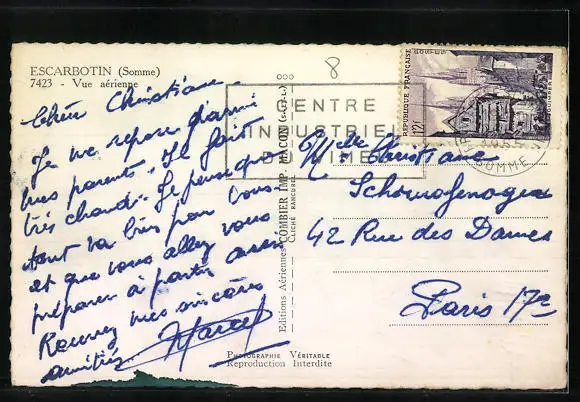 ESCARBOTIN (Somme)
7423 - Vue aérienne
Chère Christiane
Je me repose parmi
mes parents. Il fait
très chaud. Je pense que
tout va bien pour vous
et que vous allez vous
préparer à partir aussi
Recevez mes sincères
amitiés. Marcel
8
CENTRE
INDUSTRIEL
DU VIMEU
SOMME
REPUBLIQUE FRANÇAISE
POSTES
12F
Editions Aériennes COMBIER IMP. MACON (S.A.F.L.)
CLICHÉ RANCUREL
Melle Christiane
42 Rue des Dames
Paris 17e
PHOTOGRAPHIE VÉRITABLE
Reproduction Interdite